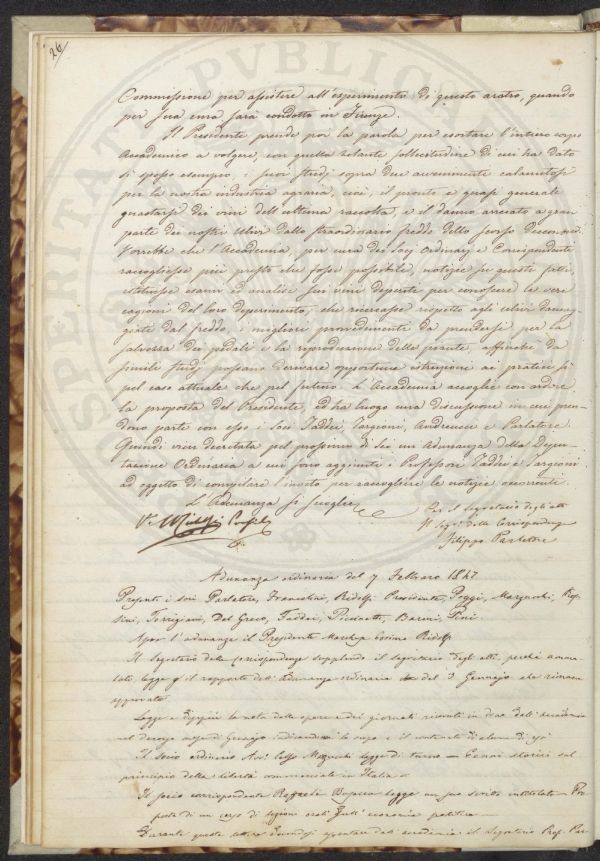 26
Commissione per assistere all'esperimento di questo aratro, quando
per sua cura sarà condotto in Firenze.
Il Presidente prende poi la parola per esortare l'intero corpo
Accademico a volgere, con quella zelante sollecitudine di cui ha dato
sì spesso esempio, i suoi studj sopra due avvenimenti calamitosi
per la nostra industria agraria, cioè, il pronto e quasi generale
guastarsi dei vini dell'ultima raccolta, e il danno arrecato a gran
parte dei nostri ulivi dallo straordinario freddo dello scorso Decembre.
Vorrebbe che l'Accademia, per cura dei Socj Ordinarj e Corrispondenti
raccogliesse più presto che fosse possibile, notizie su questi fatti,
istituisse esami ed analisi sui vini deperiti per conoscere le vere
cagioni del loro deperimento; che ricercasse rispetto agli ulivi danneg-
giati dal freddo, i migliori provvedimenti da prendersi per la
salvezza dei pedali e la riproduzione delle piante, affinchè da
simili studj possano derivare opportune istruzioni ai pratici sì
pel caso attuale che pel futuro. L'Accademia accoglie con ardore
la proposta del Presidente, ed ha luogo una discussione in cui pren-
dono parte con esso i Soci Taddei, Targioni, Andreucci e Parlatore.
Quindi vien decretata pel prossimo dì sei un'Adunanza della Depu-
tazione Ordinaria a cui sono aggiunti i Professori Taddei e Targioni
ad oggetto di compilare l'invito per raccogliere le notizie occorrenti.
L'Adunanza si scioglie
V.
Per il Segretario degli atti
Il Segr. delle Corrispondenze
Filippo Parlatore
Adunanza ordinaria del 7 Febbraro 1847
Presenti i soci Parlatore, Franceschini, Ridolfi Presidente, Poggi, Marzucchi, Ros-
sini, Torrigiani, Del Greco, Taddei, Barmi, Pini
Apre l'adunanza il Presidente Marchese Cosimo Ridolfi
Il Segretario delle corrispondenze supplendo il segretario degli atti, perchè amma-
lato, legge il rapporto dell'Adunanza ordinaria del 3 Gennajo che rimane
approvato
Legge la nota delle opere e dei giornali ricevuti in dono dall'accademia
nel decorso mese di Gennajo indicandone lo scopo e il contenuto di alcuni di essi
Il socio ordinario Avv. Celso Marzucchi legge di turno - Cenni storici sul
principio della libertà commerciale in Italia -
Il socio corrispondente Raffaele Busacca legge un suo scritto intitolato - Pro-
posta di un corso di lezioni orali sull'economia politica -
Durante questa lettura dovendosi assentare dall'accademia il Segretario Prof. Par-